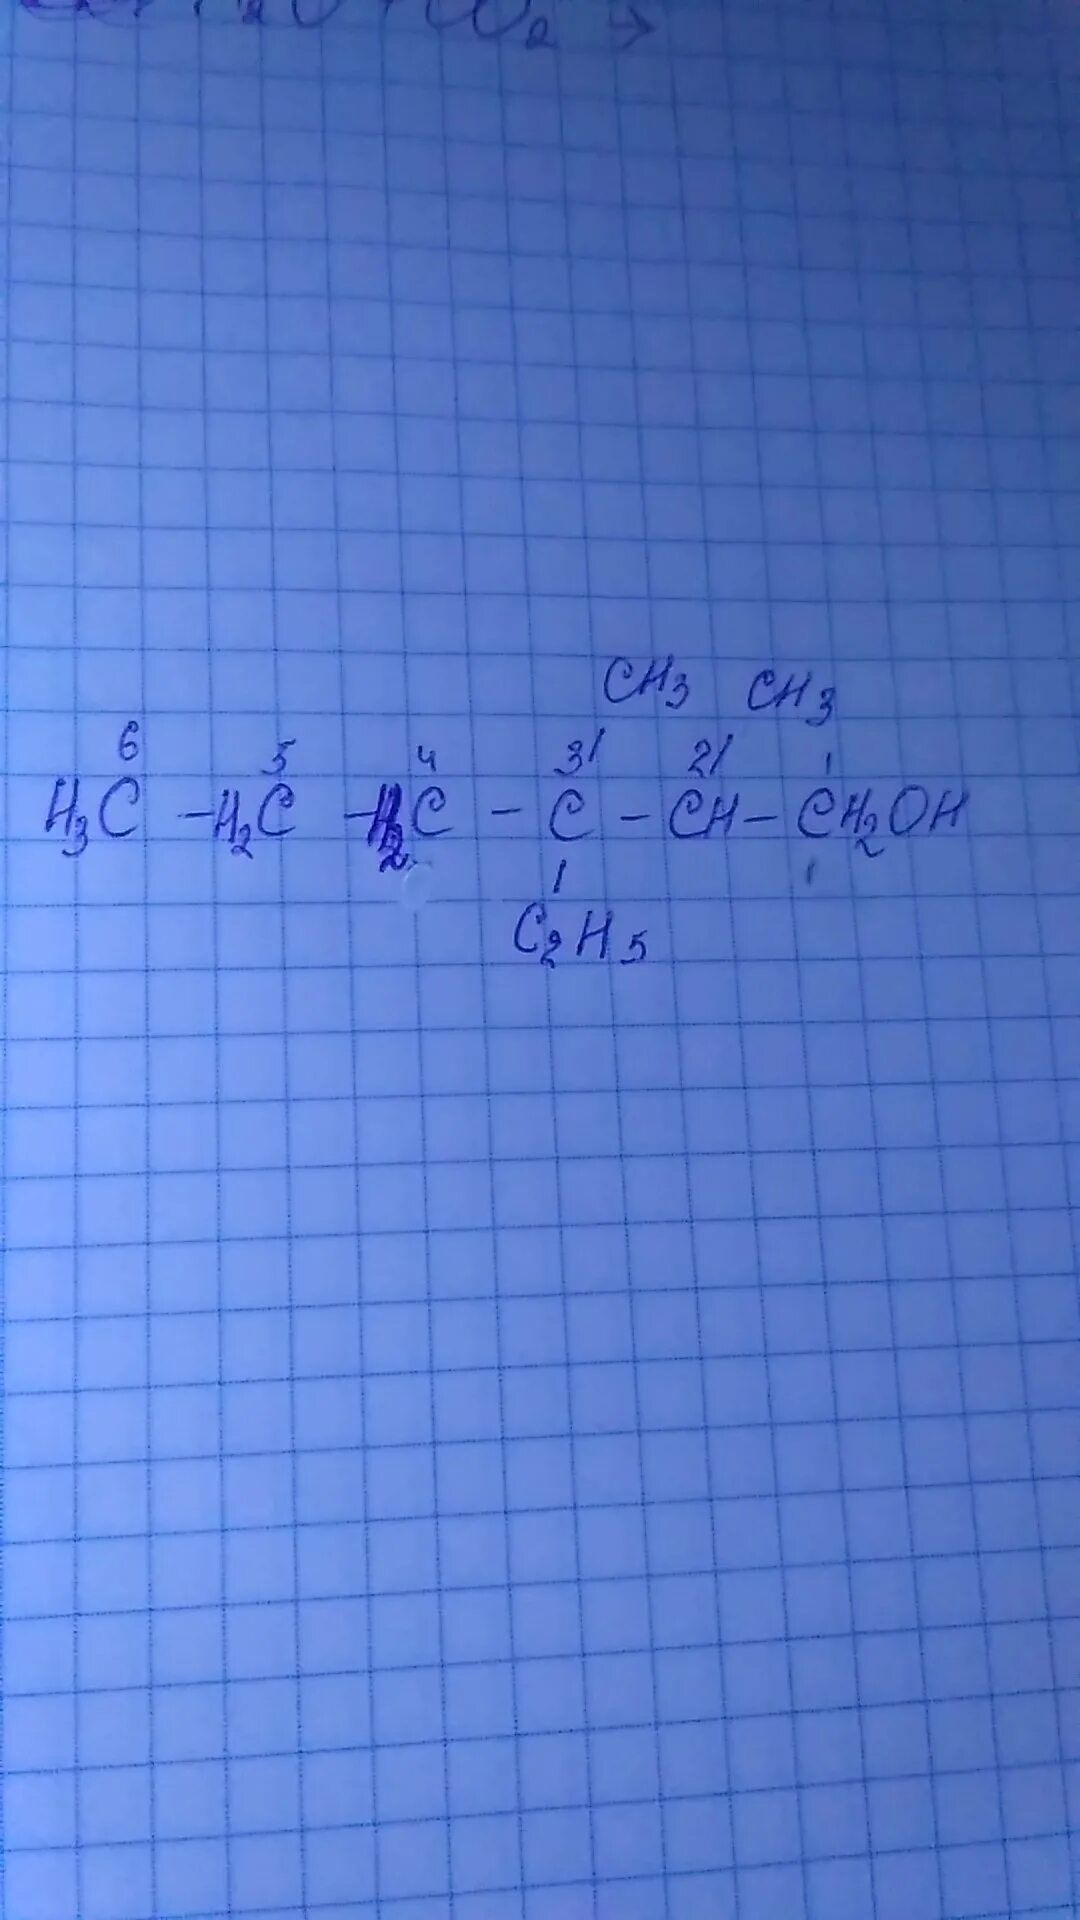 CO₂ →
CH₃ CH₃
6 5 4 3 2 1
H₃C – H₂C – H₂C – C – CH – CH₂OH
C₂H₅